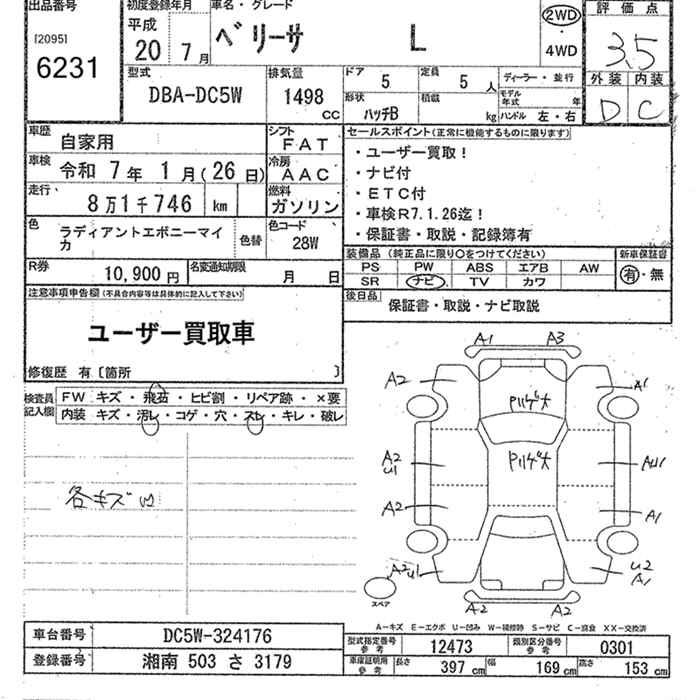 出品番号 初度登録年月 車名・グレード 評価点
[2095] 平成 ベリーサ L 2WD 3.5
6231 20年 7月 ・ 4WD
型式 排気量 ドア 定員 ディーラー・並行 外装 内装
DBA-DC5W 1498 CC 5 5人 モデル年式 年 D C
形状 ハッチB 積載 kg ハンドル 左・右
車歴 自家用 シフト FAT セールスポイント(正常に機能するものに限ります)
車検 令和 7年 1月(26日) 冷房 AAC
・ユーザー買取!
・ナビ付
走行 8万1千746 km 燃料 ガソリン
・ETC付
・車検R7.1.26迄!
・保証書・取説・記録簿有
色 ラディアントエボニーマイカ 色替 色コード 28W
装備品(純正品に限り〇をつけてください) 新車保証書
PS PW ABS エアB AW 有・無
SR ナビ TV カワ
R券 10,900円 名変通知期限 月 日
後日品 保証書・取説・ナビ取説
注意事項申告欄(不具合内容等は具体的に記入して下さい)
ユーザー買取車
修復歴 有〔箇所 〕
検査員記入欄 FW キズ・飛石・ヒビ割・リペア跡・×要
内装 キズ・汚レ・コゲ・穴・スレ・キレ・破レ
A1 A3
A2 A1
A2 U1
A2 A1
A2 U1 U2 A1
A2 A2
スペア
A-キズ E-エクボ U-凹み W-補修跡 S-サビ C-腐食 XX-交換済
車台番号 DC5W-324176 型式指定番号 参考 12473 類別区分番号 参考 0301
登録番号 湘南 503 さ 3179 車庫証明用 参考 長さ 397cm 幅 169cm 高さ 153cm